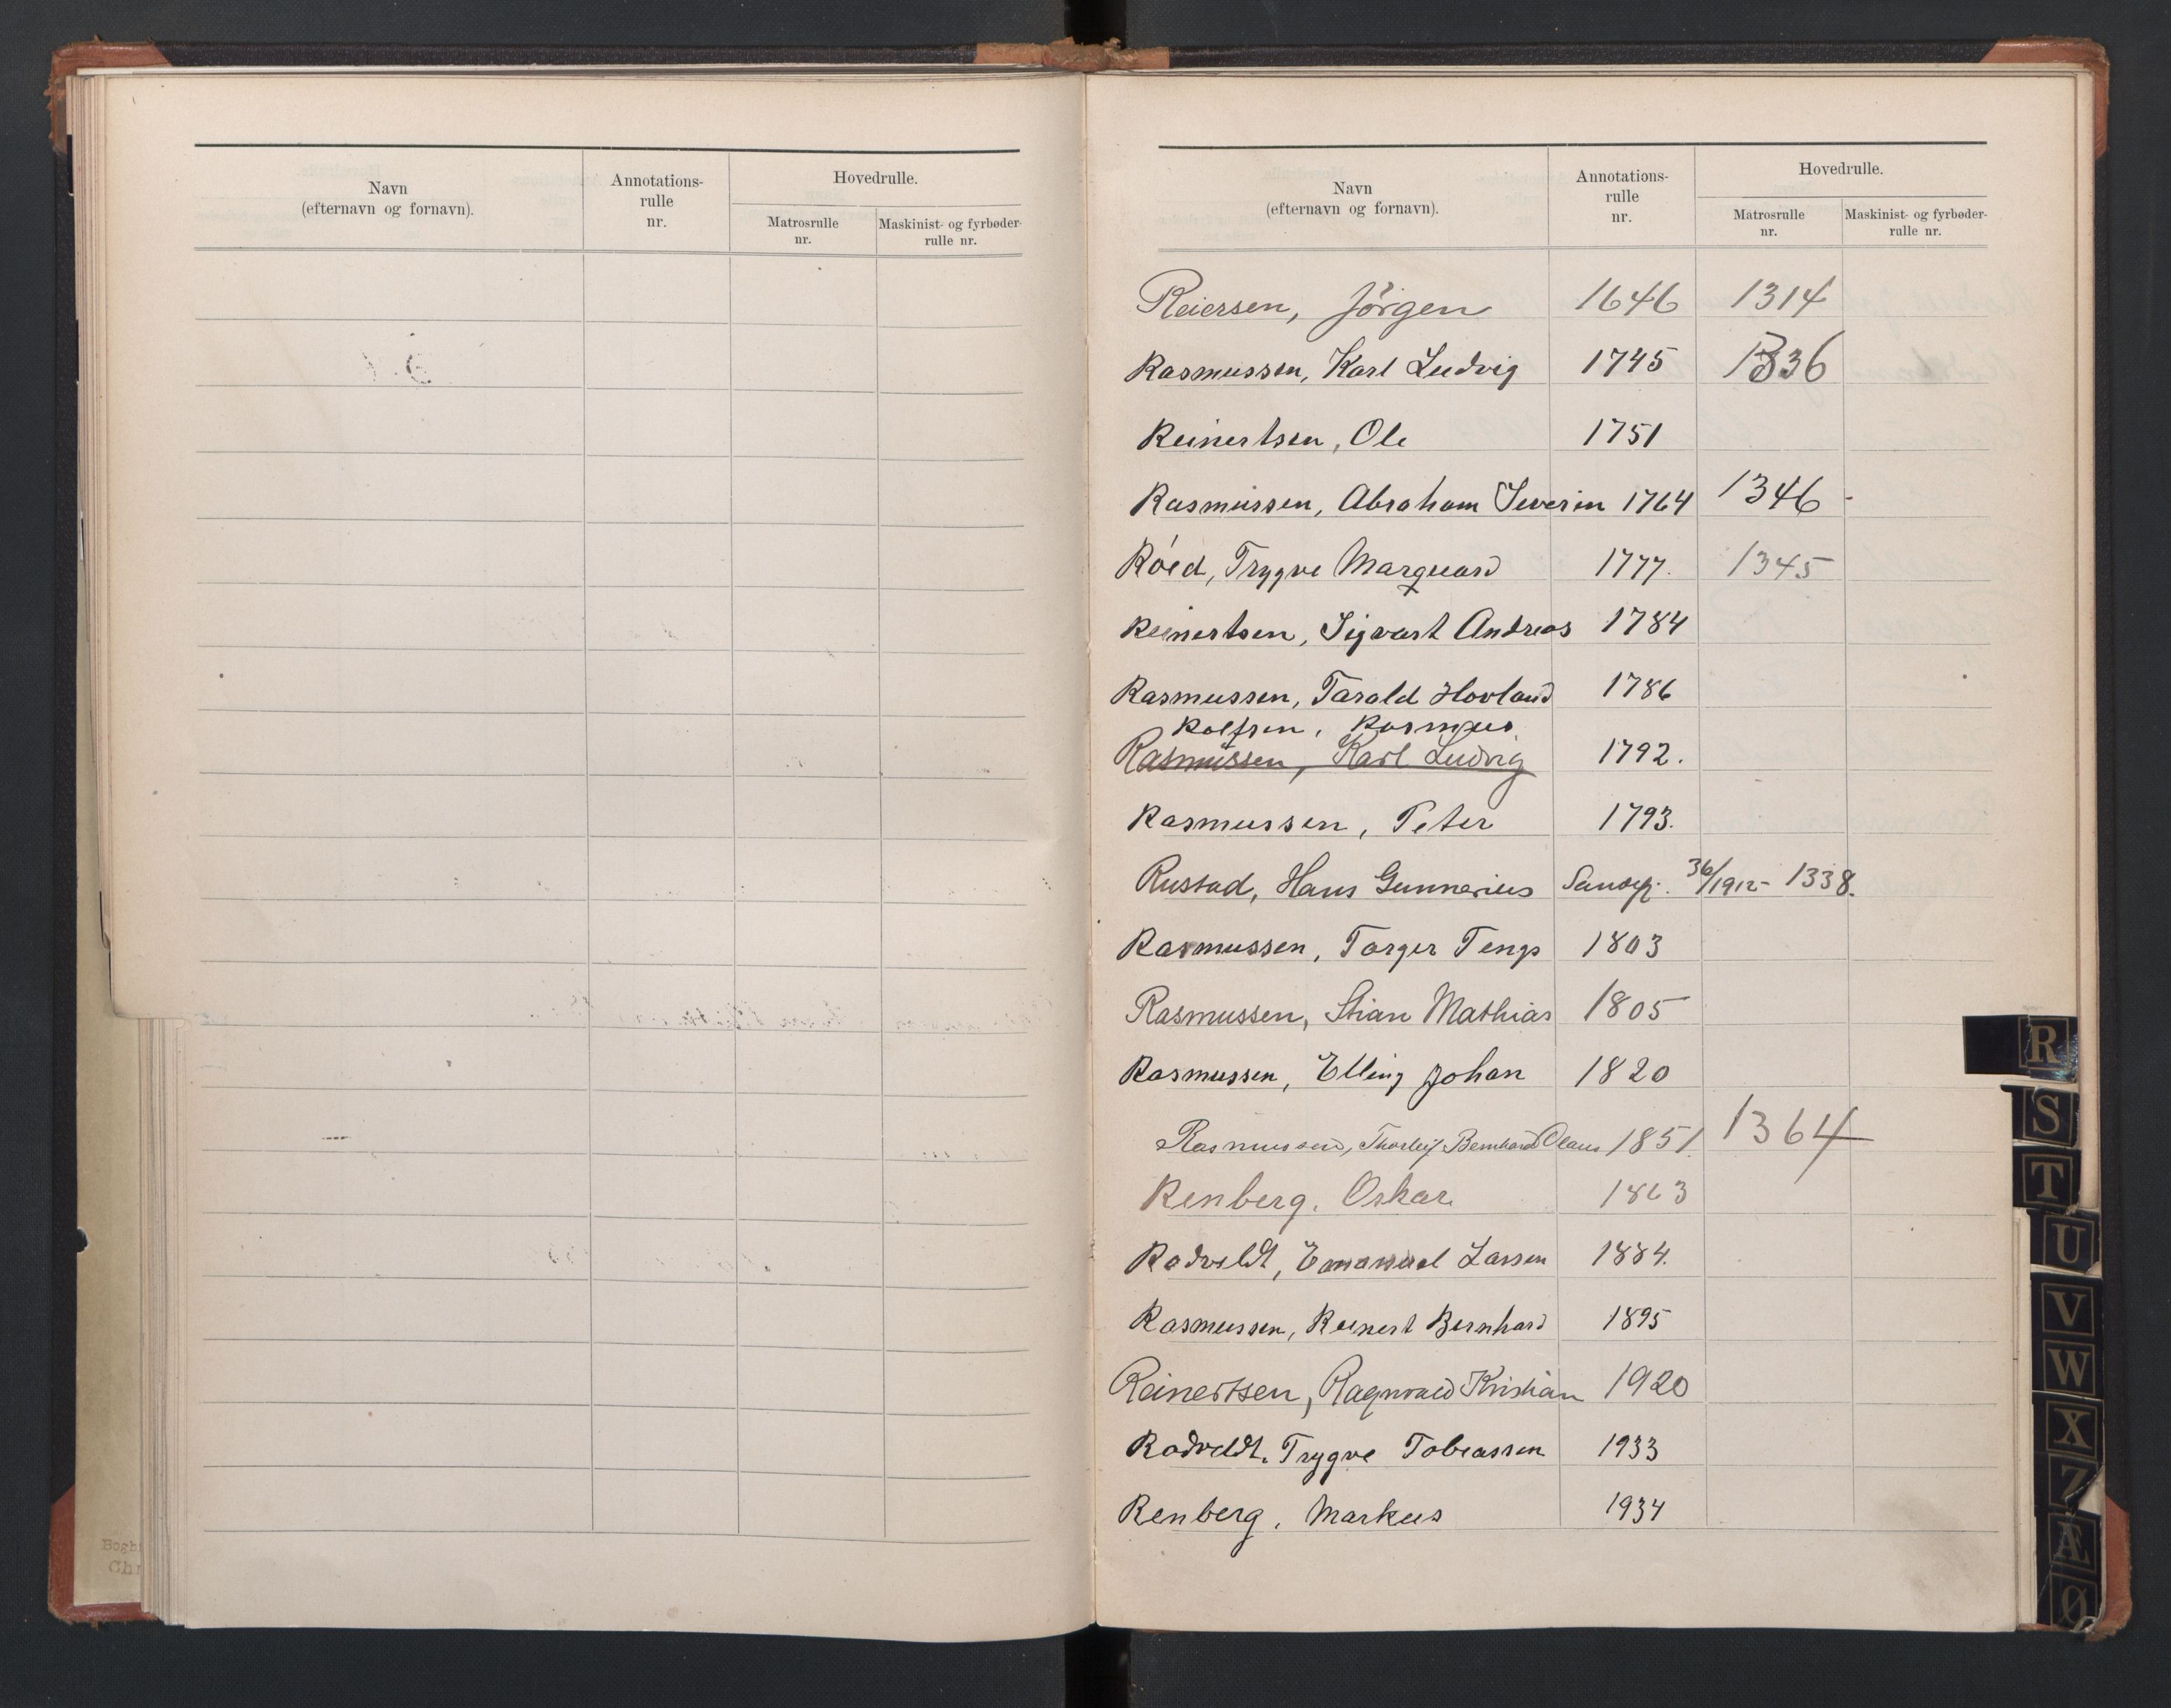 Navn
(efternavn og fornavn).
Annotations-
rulle
nr.
Hovedrulle.
Matrosrulle
nr.
Maskinist- og fyrbøder-
rulle nr.
Navn
(efternavn og fornavn).
Annotations-
rulle
nr.
Hovedrulle.
Matrosrulle
nr.
Maskinist- og fyrbøder-
rulle nr.
Reiersen, Jörgen 1646 1314
Rasmussen, Karl Ludvig 1745 1336
Reinertsen, Ole 1751
Rasmussen, Abraham Severin 1764 1346
Róed, Trygve Marquard 1777. 1345
Reinertsen, Sigvart Andreas 1784
Rasmussen, Tarald Hovland 1786
Rolfsen, Rasmus
Rasmussen, Karl Ludvig 1792.
Rasmussen, Peter 1793.
Rustad, Hans Gunnerius Sandefj. 36/1912- 1338.
Rasmussen, Torger Tengs 1803
Rasmussen, Stian Mathias 1805
Rasmussen, Elling Johan 1820
Rasmussen, Thorleif Bernhard Olaus 1851. 1364
Renberg, Oskar 1863
Rodveldt, Emanuel Larsen 1884.
Rasmussen, Reinert Bernhard 1895
Reinertsen, Ragnvald Kristian 1920
Rodveldt, Trygve Tobiassen 1933
Renberg, Markus 1934
R
S
T
U
V
W
X
Z
Æ
Ø